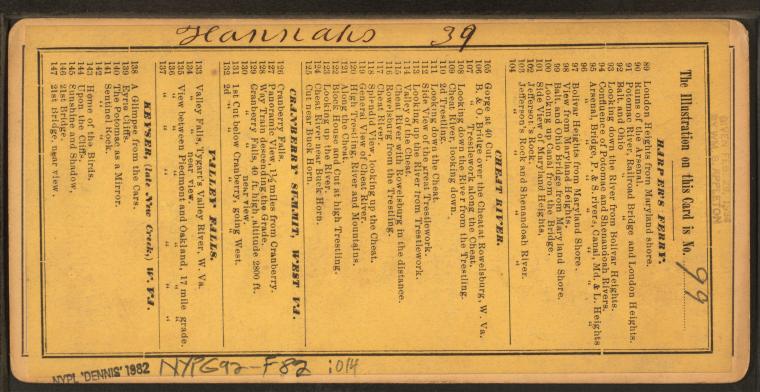 Hannahs 39
The Illustration on this Card is No. 99
HARPER'S FERRY.
89 London Heights from Maryland shore.
90 Ruins of the Arsenal.
91 Potomac River, Railroad Bridge and London Heights.
92 Balt. and Ohio Bridge.
93 Looking down the River from Bolivar Heights.
94 Confluence of Potomac and Shenandoah Rivers.
95 Arsenal, Bridge, P. & S. rivers, Canal, Md. & L. Heights
96 " " " " "
97 Bolivar Heights from Maryland Shore.
98 View from Maryland Heights.
99 Balt. and Ohio Bridge from Maryland Shore.
100 Lock and Canal from the Bridge.
101 Side View of Maryland Heights.
102 Jefferson's Rock.
103 Jefferson's Rock and Shenandoah River.
104 " " " "
CHEAT RIVER.
105 Gorge at 40 Cut.
106 B. & O. Bridge over the Cheat at Rowelsburg, W. Va.
107 " Trestlework along the Cheat.
108 Looking down the River from the Trestling.
109 Cheat River, looking down.
110 2d Trestling.
111 Looking up the Cheat.
112 Side View of the great Trestlework.
113 Looking up the River from Trestlework.
114 Valley of the Cheat.
115 Cheat River with Rowelsburg in the distance.
116 Rowelsburg from the Trestling.
117 Cheat River.
118 Splendid View, looking up the Cheat.
119 General View of Cheat River.
120 High Trestling, River and Mountains.
121 Along the Cheat.
122 Rocky Gorge and Cut at high Trestling.
123 Looking up the River.
124 Cheat River near Buck Horn.
125 Cut near Buck Horn.
CRANBERRY SUMMIT, WEST VA.
126 Cranberry Falls.
127 Panoramic View, 1½ miles from Cranberry.
128 Way Train descending the Grade.
129 Cranberry Falls, 40 ft. high, altitude 2800 ft.
130 " " near view.
131 1st Cut below Cranberry, going West.
132 2d " " " "
VALLEY FALLS.
133 Valley Falls, Tygart's Valley River, W. Va.
134 " " near view.
135 View between Piedmont and Oakland, 17 mile grade.
136 " " " " "
137 " " " " "
KEYSER, (late New Creek,) W. VA.
138 Glimpse from the Cars.
139 Eyrie Cliffs.
140 The Potomac as a Mirror.
141 Sentinel Rock.
142 " "
143 Home of the Birds.
144 Upon the Cliffs.
145 Sunshine and Shadow.
146 21st Bridge.
147 21st Bridge, near view.
NYPL 'DENNIS' 1982 NYPG92-F82 :014